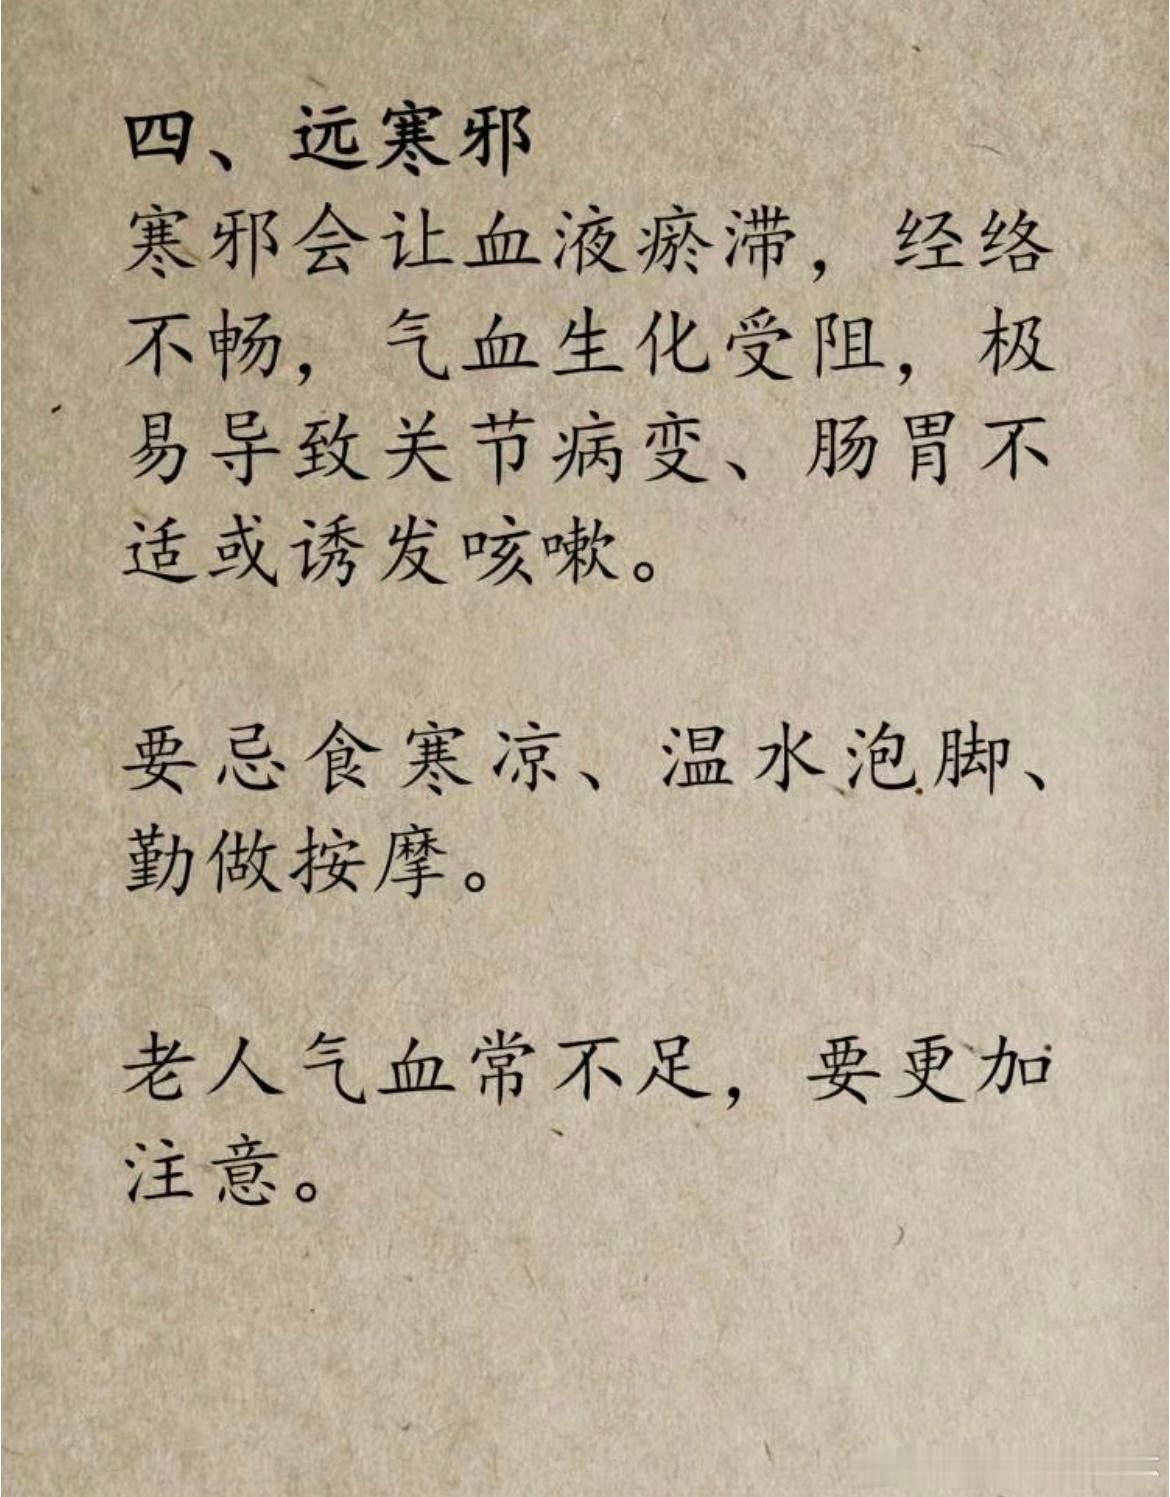 四、远寒邪
寒邪会让血液瘀滞，经络
不畅，气血生化受阻，极
易导致关节病变、肠胃不
适或诱发咳嗽。
要忌食寒凉、温水泡脚、
勤做按摩。
老人气血常不足，要更加
注意。